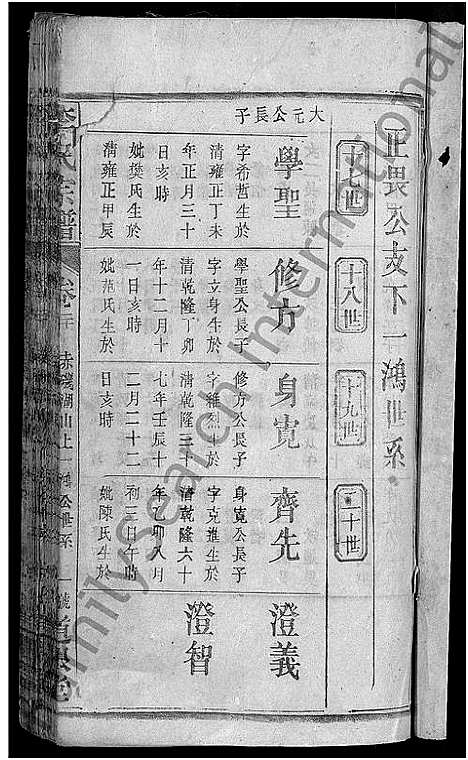 正畏公支下一鴻世系
十七世
十八世
十九世
二十世
大元公長子
學聖
字希哲生於
清雍正丁未
年正月三十
日亥時
妣樊氏生於
清雍正甲辰
修方
學聖公長子
字立身生於
清乾隆丁卯
年十二月十
一日亥時
妣范氏生於
身寬
修方公長子
字雅烈生於
清乾隆三十
七年壬辰十
二月二十二
日亥時
齊先
身寬公長子
字克進生於
清乾隆六十
年乙卯八月
初三日午時
妣陳氏生於
澄義
澄智
氏宗譜
卷二
世系
FamilySearch International